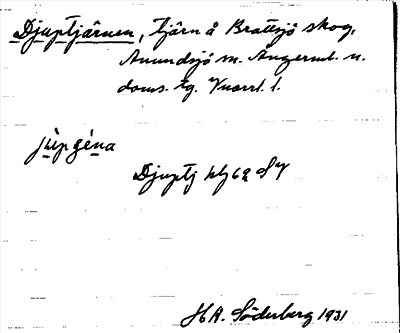 Djuptjärnen, tjärn å Brattsjö skog,
Anundsjö sn. Ångerml. n.
doms. tg. Vnorrl. l.
jùpʒéṇa
Djuptj
HA. Söderberg 1931